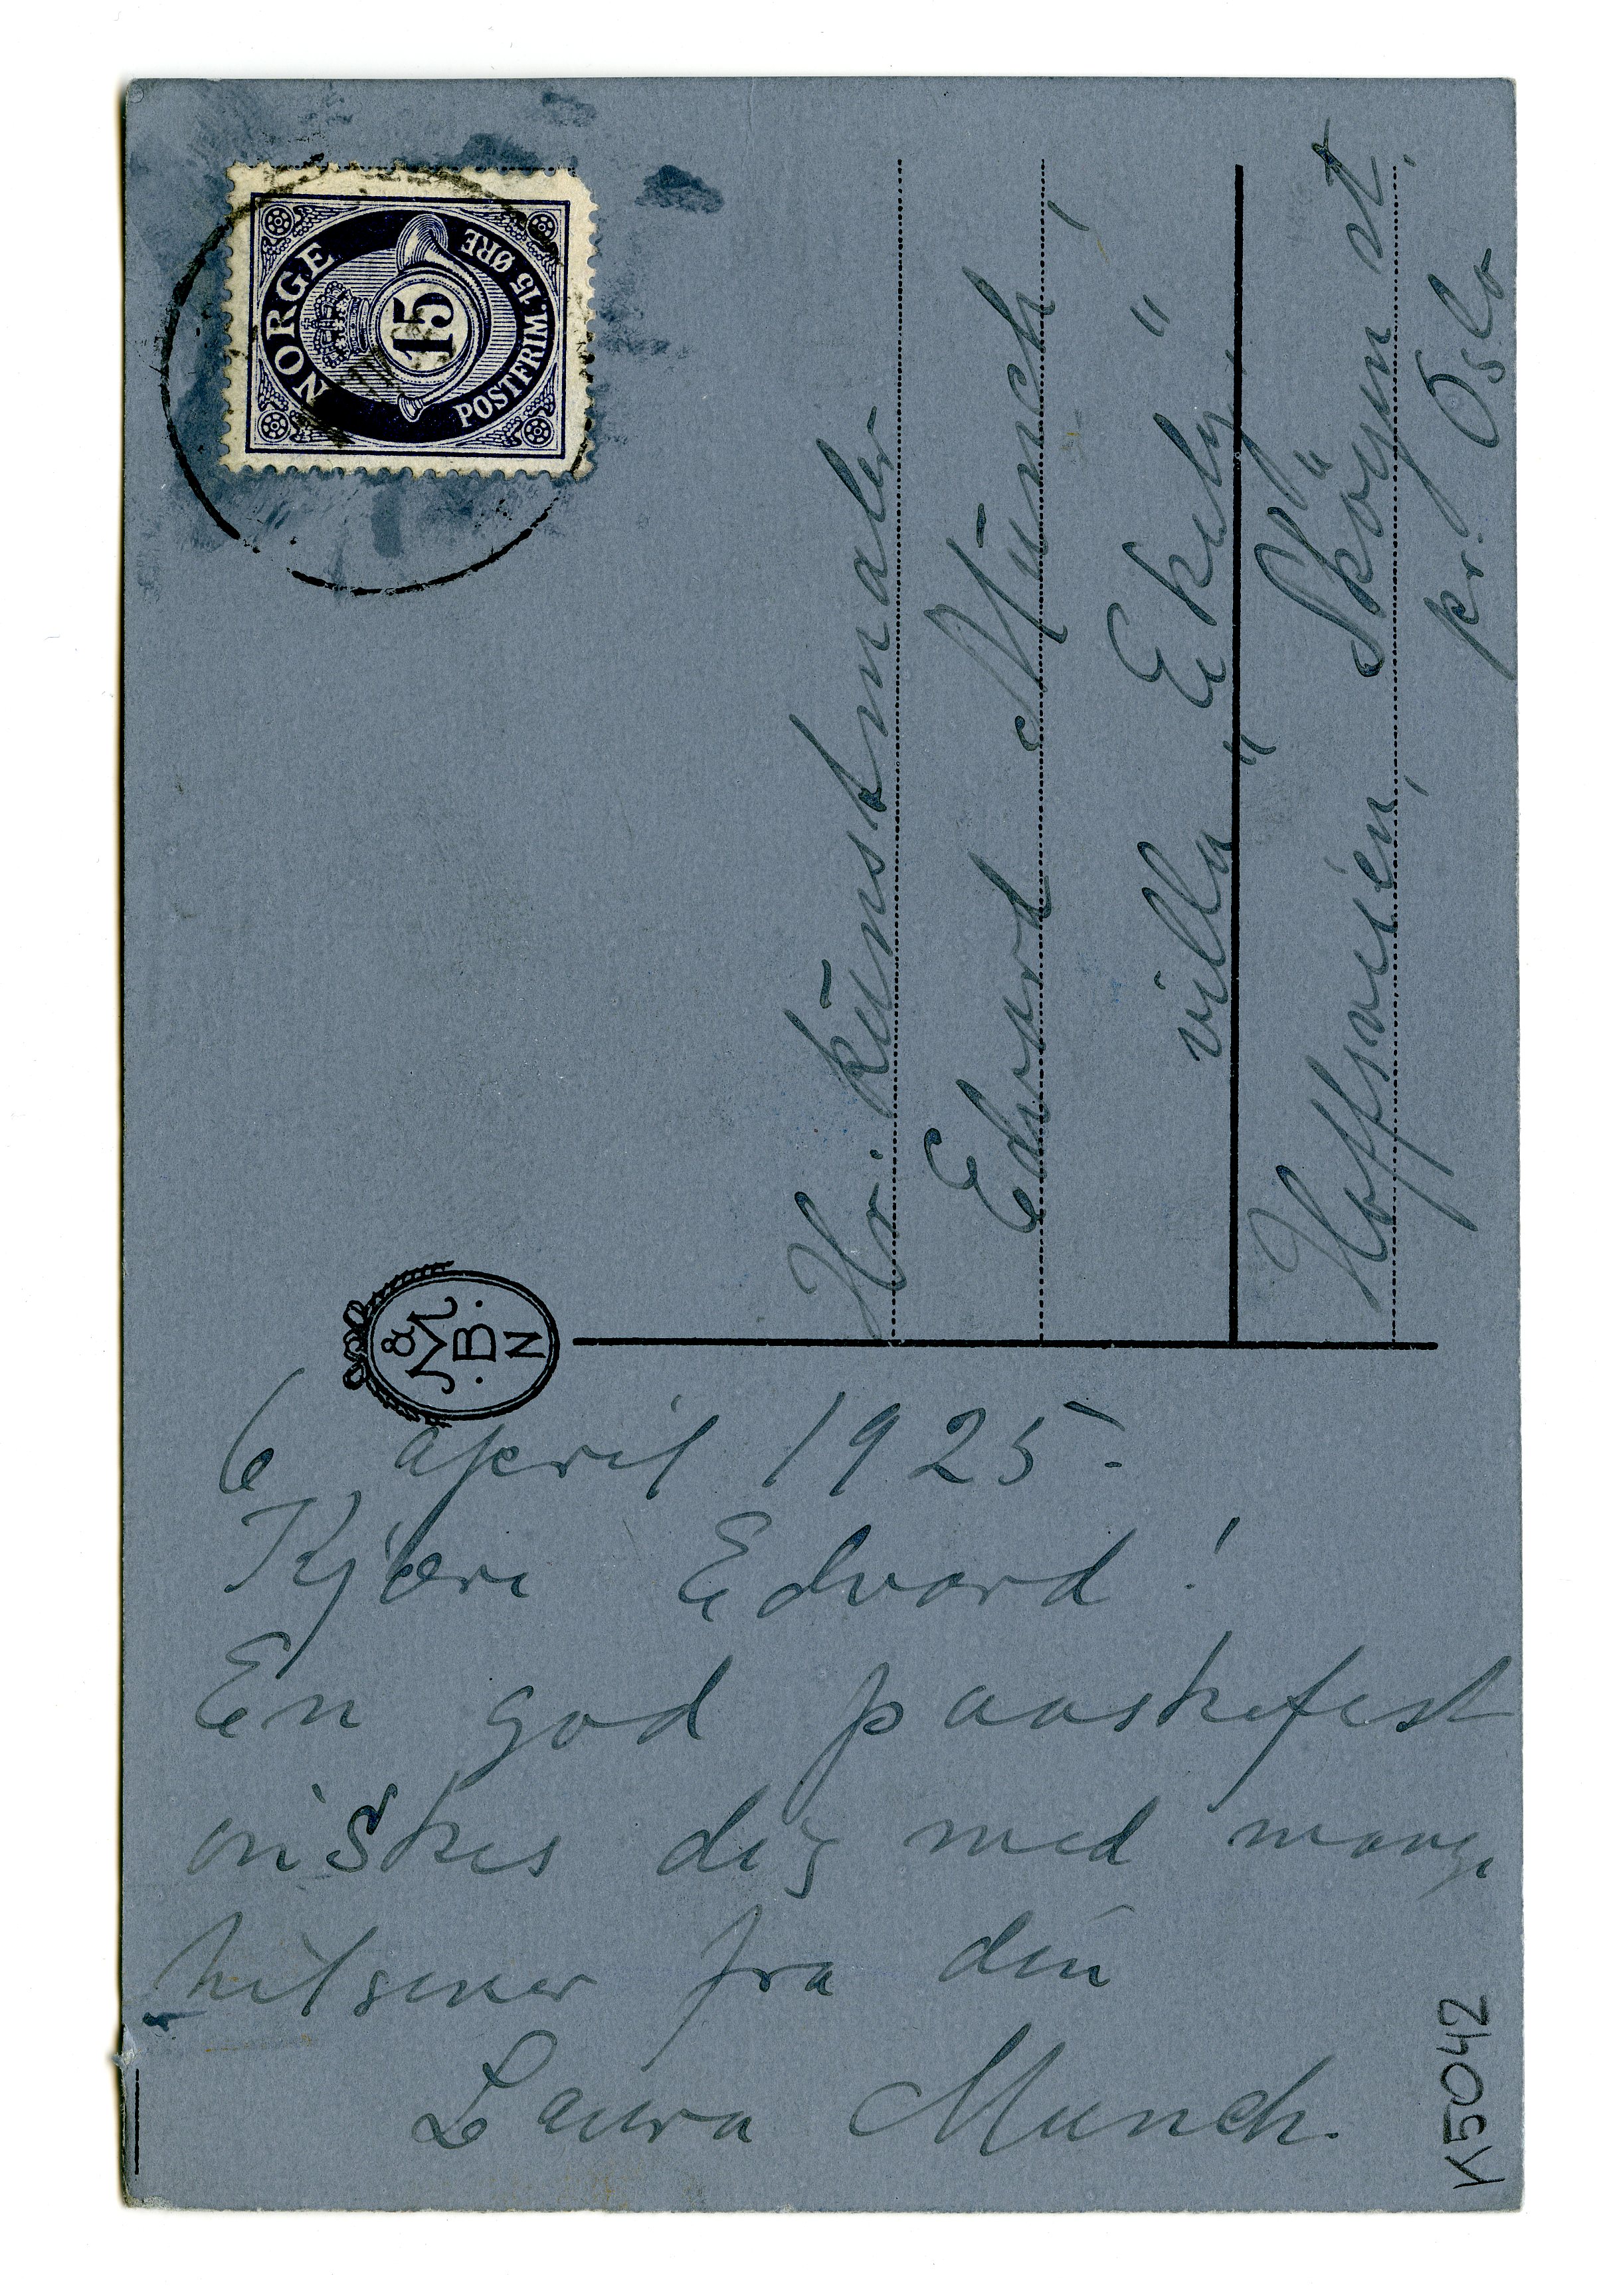 NORGE
15
POSTFRIM. 15 ØRE
Hr. Kunstmaler
Edvard Munch
villa "Ekely"
Hoffsveien, Sköyen st.
pr. Oslo
&
M
.B.
N
6 april 1925.
Kjære Edvard!
En god paaskefest
önskes dig med mange
hilsener fra din
Laura Munch.
K5042